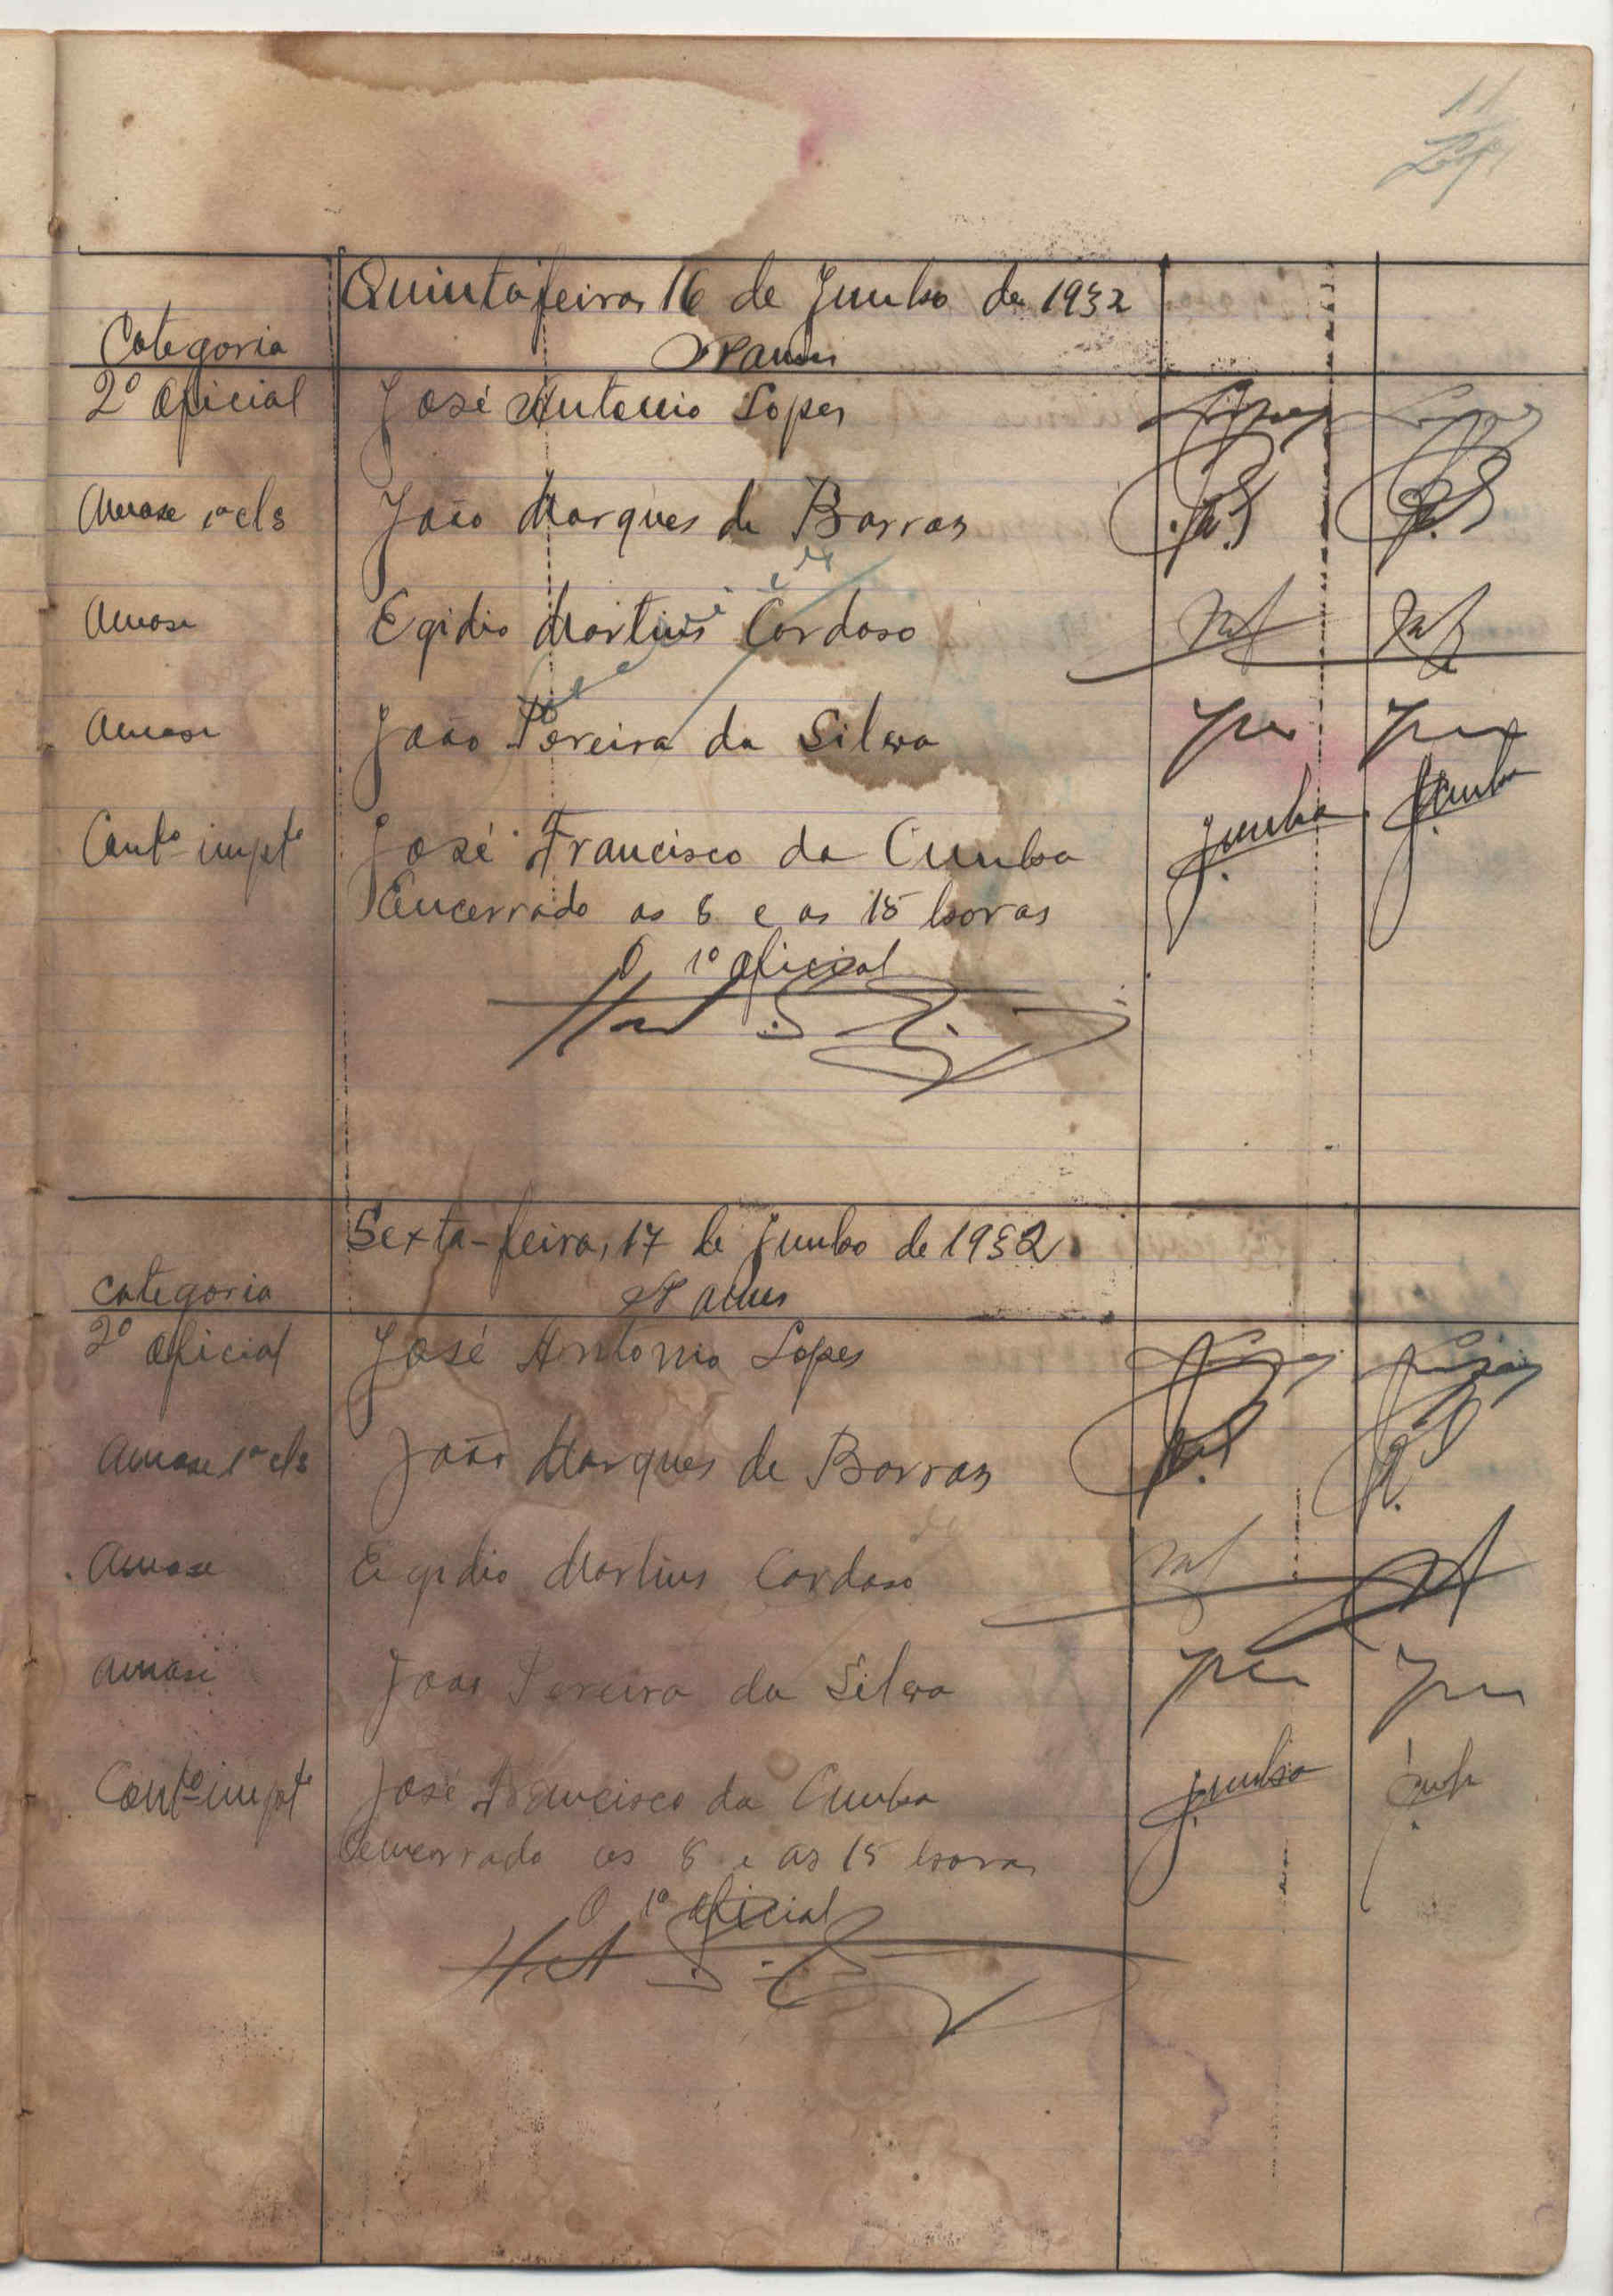 11
Lopes
Quinta feira, 16 de Junho de 1932
Categoria Nomes
2º Oficial José Antonio Lopes Lopes Lopes
Amase 1ª cls João Marques de Barros
Amase Egidio Martins Cardoso
Amase João Pereira da Silva
Contº impte José Francisco da Cunha JCunha JCunha
Encerrado as 8 e as 15 horas
O 1º Oficial
Sexta-feira, 17 de Junho de 1932
Categoria Nomes
2º Oficial José Antonio Lopes Lopes Lopes
Amase 1ª cls João Marques de Barros
Amase Egidio Martins Cardoso
Amase João Pereira da Silva
Contº impte José Francisco da Cunha JCunha
Encerrado as 8 e as 15 horas
O 1º Oficial